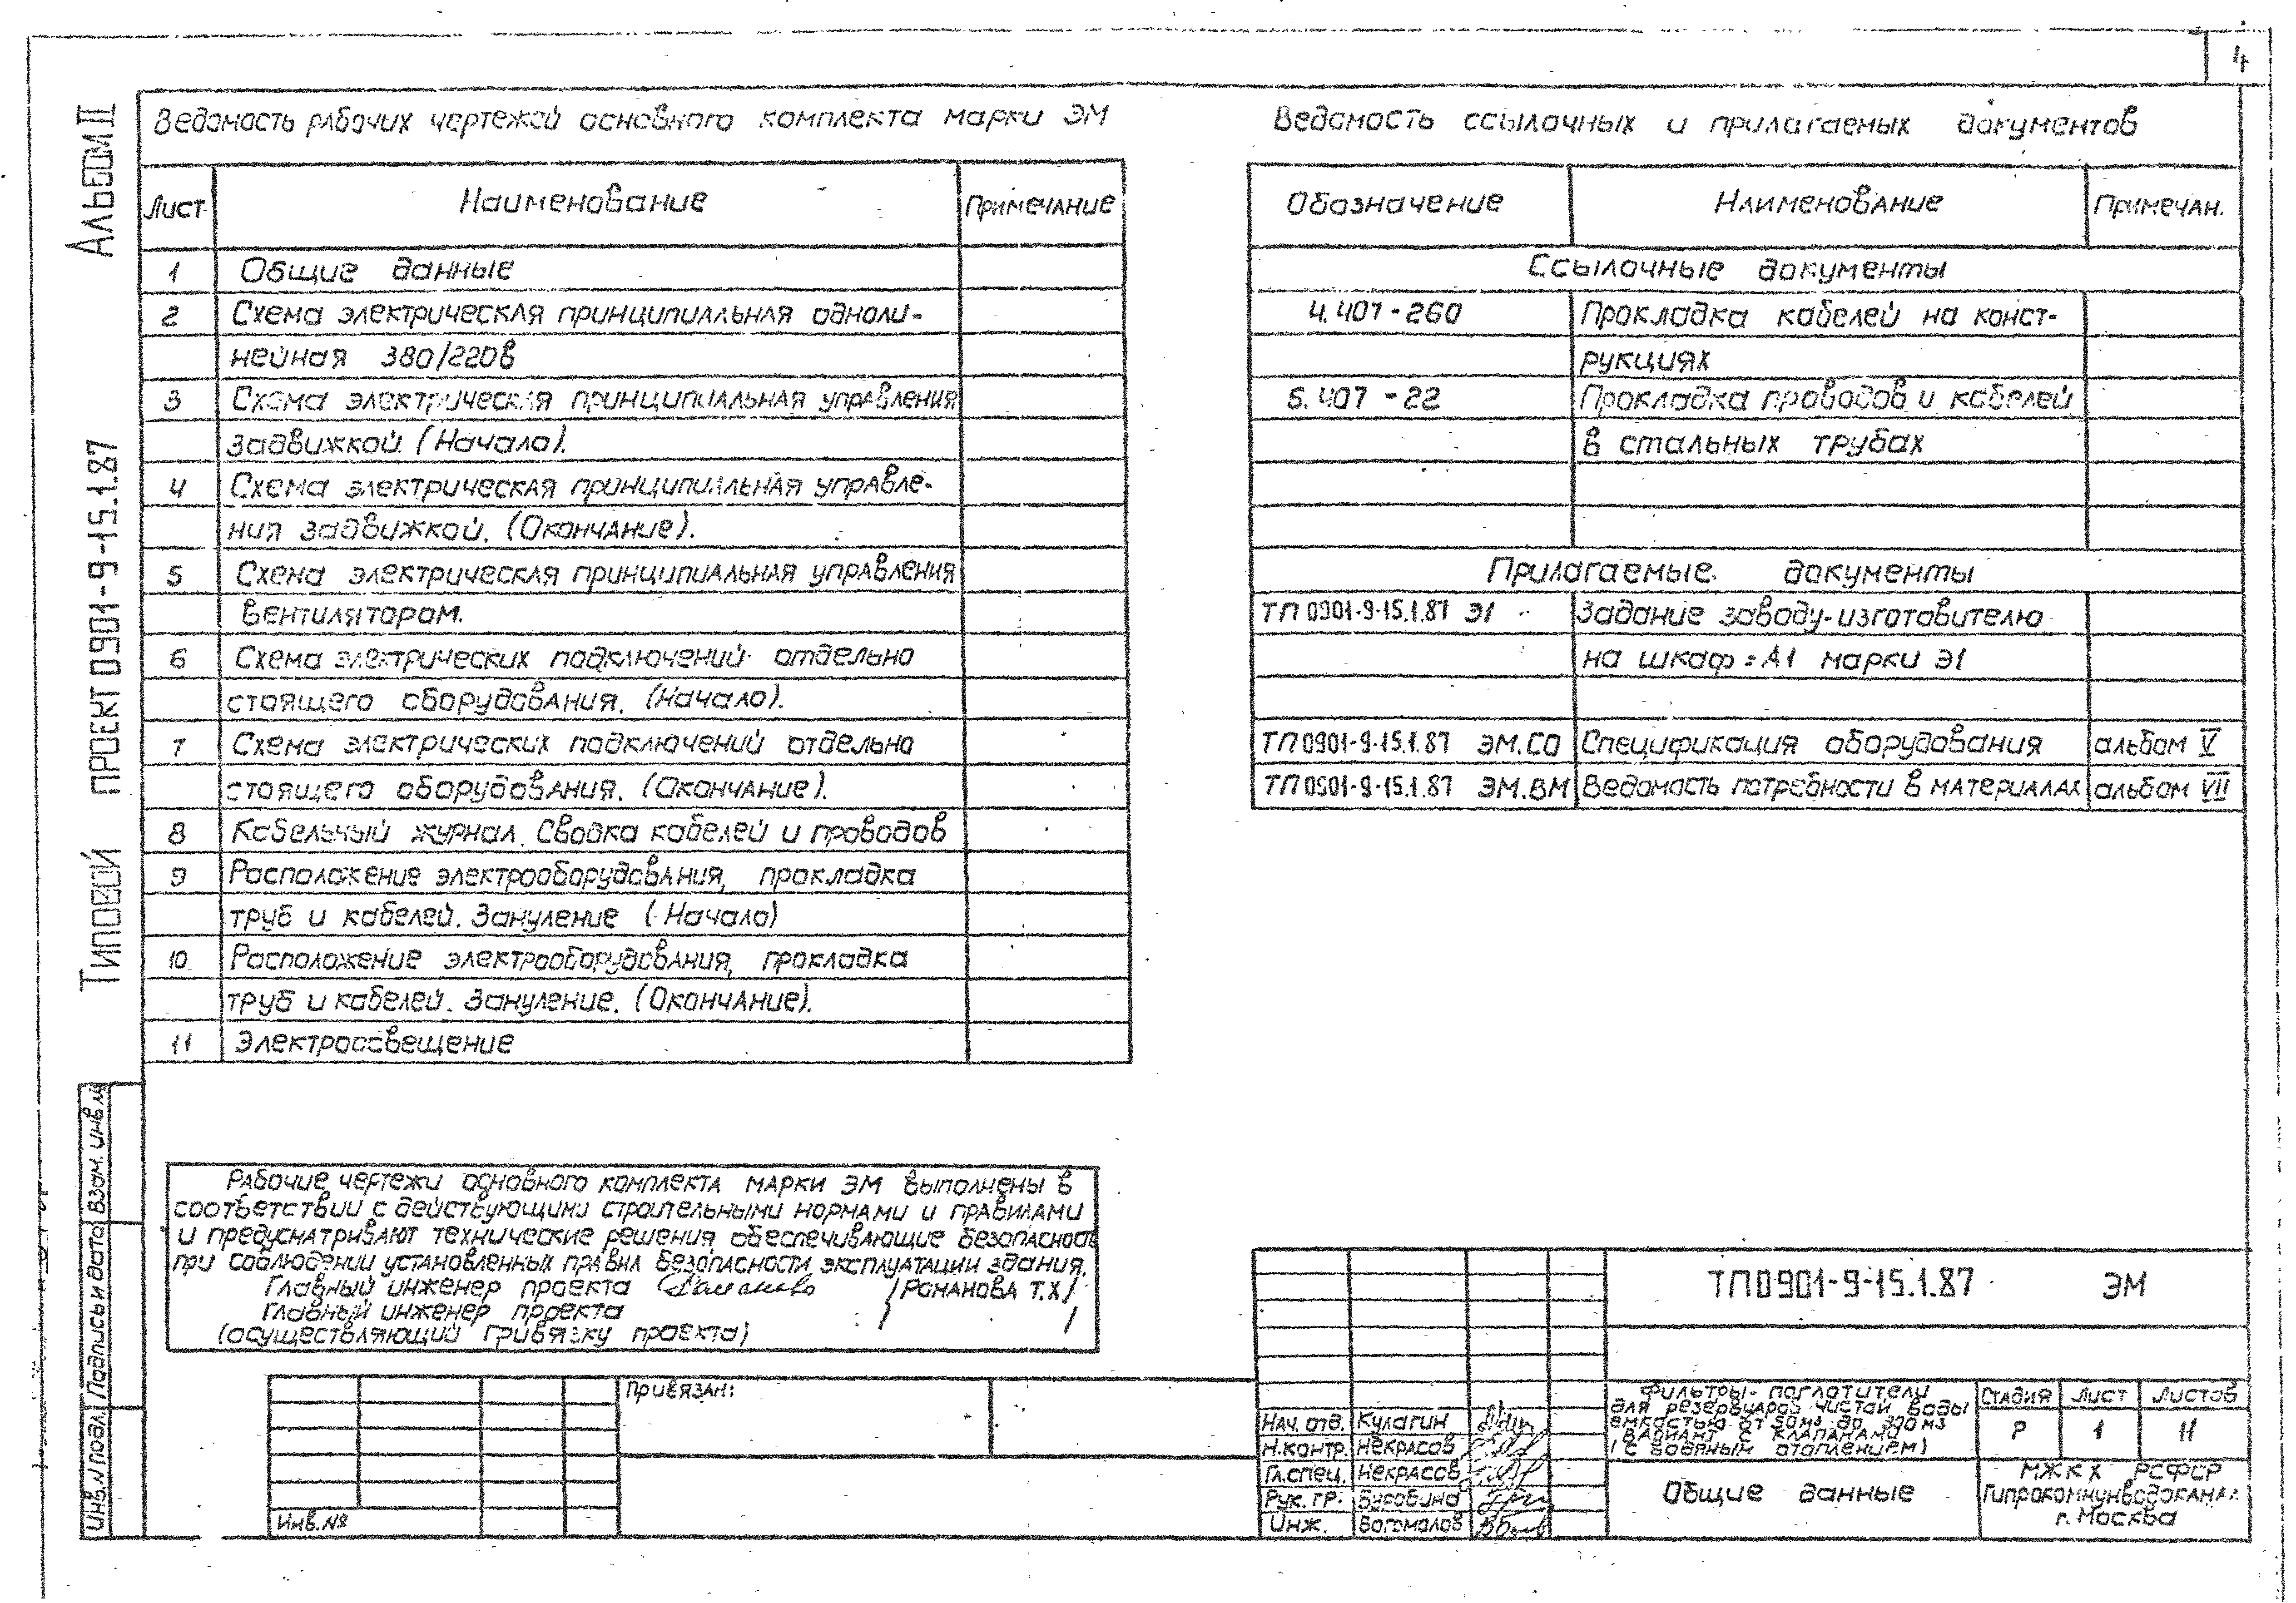 4
Альбом II
Типовой проект 0901-9-15.1.87
Ведомость рабочих чертежей основного комплекта марки ЭМ
Лист Наименование Примечание
1 Общие данные
2 Схема электрическая принципиальная одноли-
нейная 380/220в
3 Схема электрическая принципиальная управления
задвижкой. (Начало).
4 Схема электрическая принципиальная управле-
ния задвижкой. (Окончание).
5 Схема электрическая принципиальная управления
вентилятором.
6 Схема электрических подключений отдельно
стоящего оборудования. (Начало).
7 Схема электрических подключений отдельно
стоящего оборудования. (Окончание).
8 Кабельный журнал. Сводка кабелей и проводов
9 Расположение электрооборудования, прокладка
труб и кабелей. Зануление (Начало)
10 Расположение электрооборудования, прокладка
труб и кабелей. Зануление. (Окончание).
11 Электроосвещение
Ведомость ссылочных и прилагаемых документов
Обозначение Наименование Примечан.
Ссылочные документы
4.407-260 Прокладка кабелей на конст-
рукциях
5.407-22 Прокладка проводов и кабелей
в стальных трубах
Прилагаемые документы
ТП 0901-9-15.1.87 Э1 Задание заводу-изготовителю
на шкаф =А1 марки Э1
ТП 0901-9-15.1.87 ЭМ.СО Спецификация оборудования альбом V
ТП 0901-9-15.1.87 ЭМ.ВМ Ведомость потребности в материалах альбом VII
Рабочие чертежи основного комплекта марки ЭМ выполнены в
соответствии с действующими строительными нормами и правилами
и предусматривают технические решения обеспечивающие безопасность
при соблюдении установленных правил безопасности эксплуатации здания.
Главный инженер проекта /Романова Т.Х/
Главный инженер проекта / /
(осуществляющий привязку проекта)
Взам. инв. №
Подпись и дата
Инв. № подл.
Привязан:
Инв. №
ТП 0901-9-15.1.87 ЭМ
Нач. отд. Кулагин
Н.контр. Некрасов
Гл.спец. Некрасов
Рук. гр. Буробина
Инж. Богомолов
Фильтры-поглотители
для резервуаров чистой воды
емкостью от 50м3 до 300м3
(вариант с клапанами
(с водяным отоплением)
Стадия Лист Листов
Р 1 11
Общие данные
МЖКХ РСФСР
Гипрокоммунводоканал
г. Москва